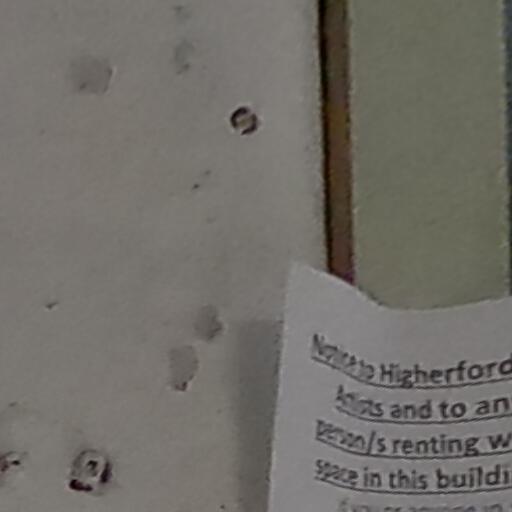 Notice to Higherford
Artists and to an
person/s renting w
space in this buildi